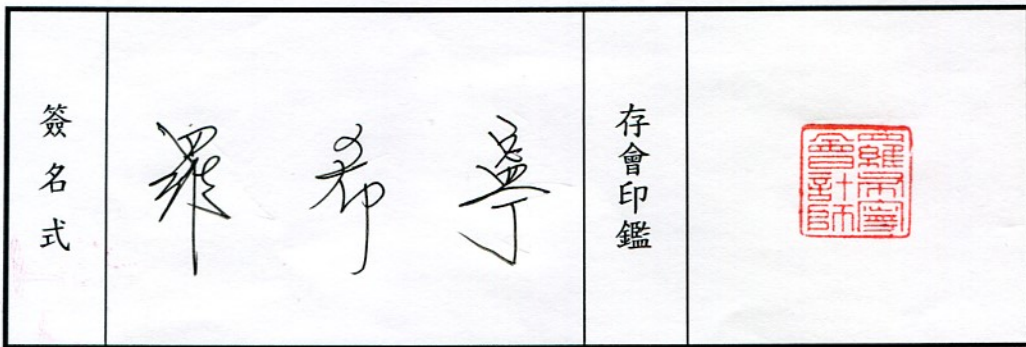 簽名式
羅希寧
存會印鑑
羅希寧
會計師